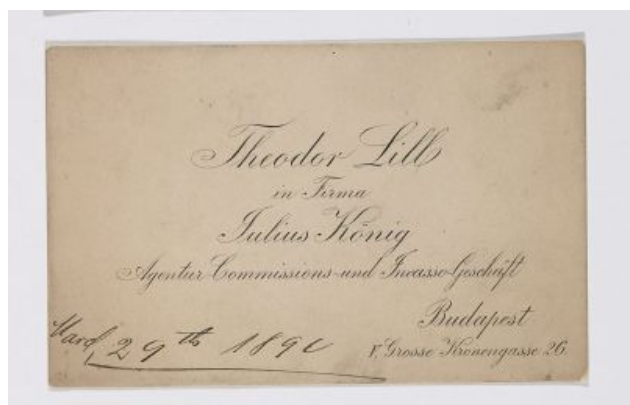 Theodor Lill
in Firma
Julius König
Agentur Commissions-und Incasso-Geschäft
Budapest
V. Grosse Kronengasse 26.
29th